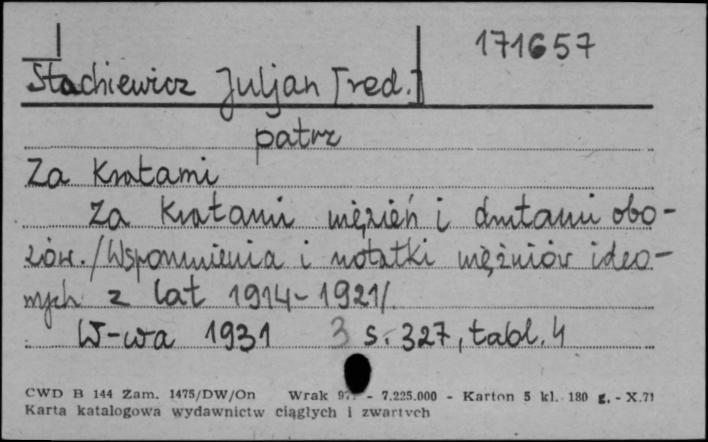 171657
Stachiewicz Juljan [red.]
patrz
Za Kratami
Za Kratami więzień i drutami obo-
zów. /Wspomnienia i notatki więźniów ideo-
wych z lat 1914-1921/.
W-wa 1931 3 s. 327, tabl. 4
CWD B 144 Zam. 1475/DW/On Wrak - 7.225.000 - Karton 5 kl. 180 g. - X.71
Karta katalogowa wydawnictw ciągłych i zwartych